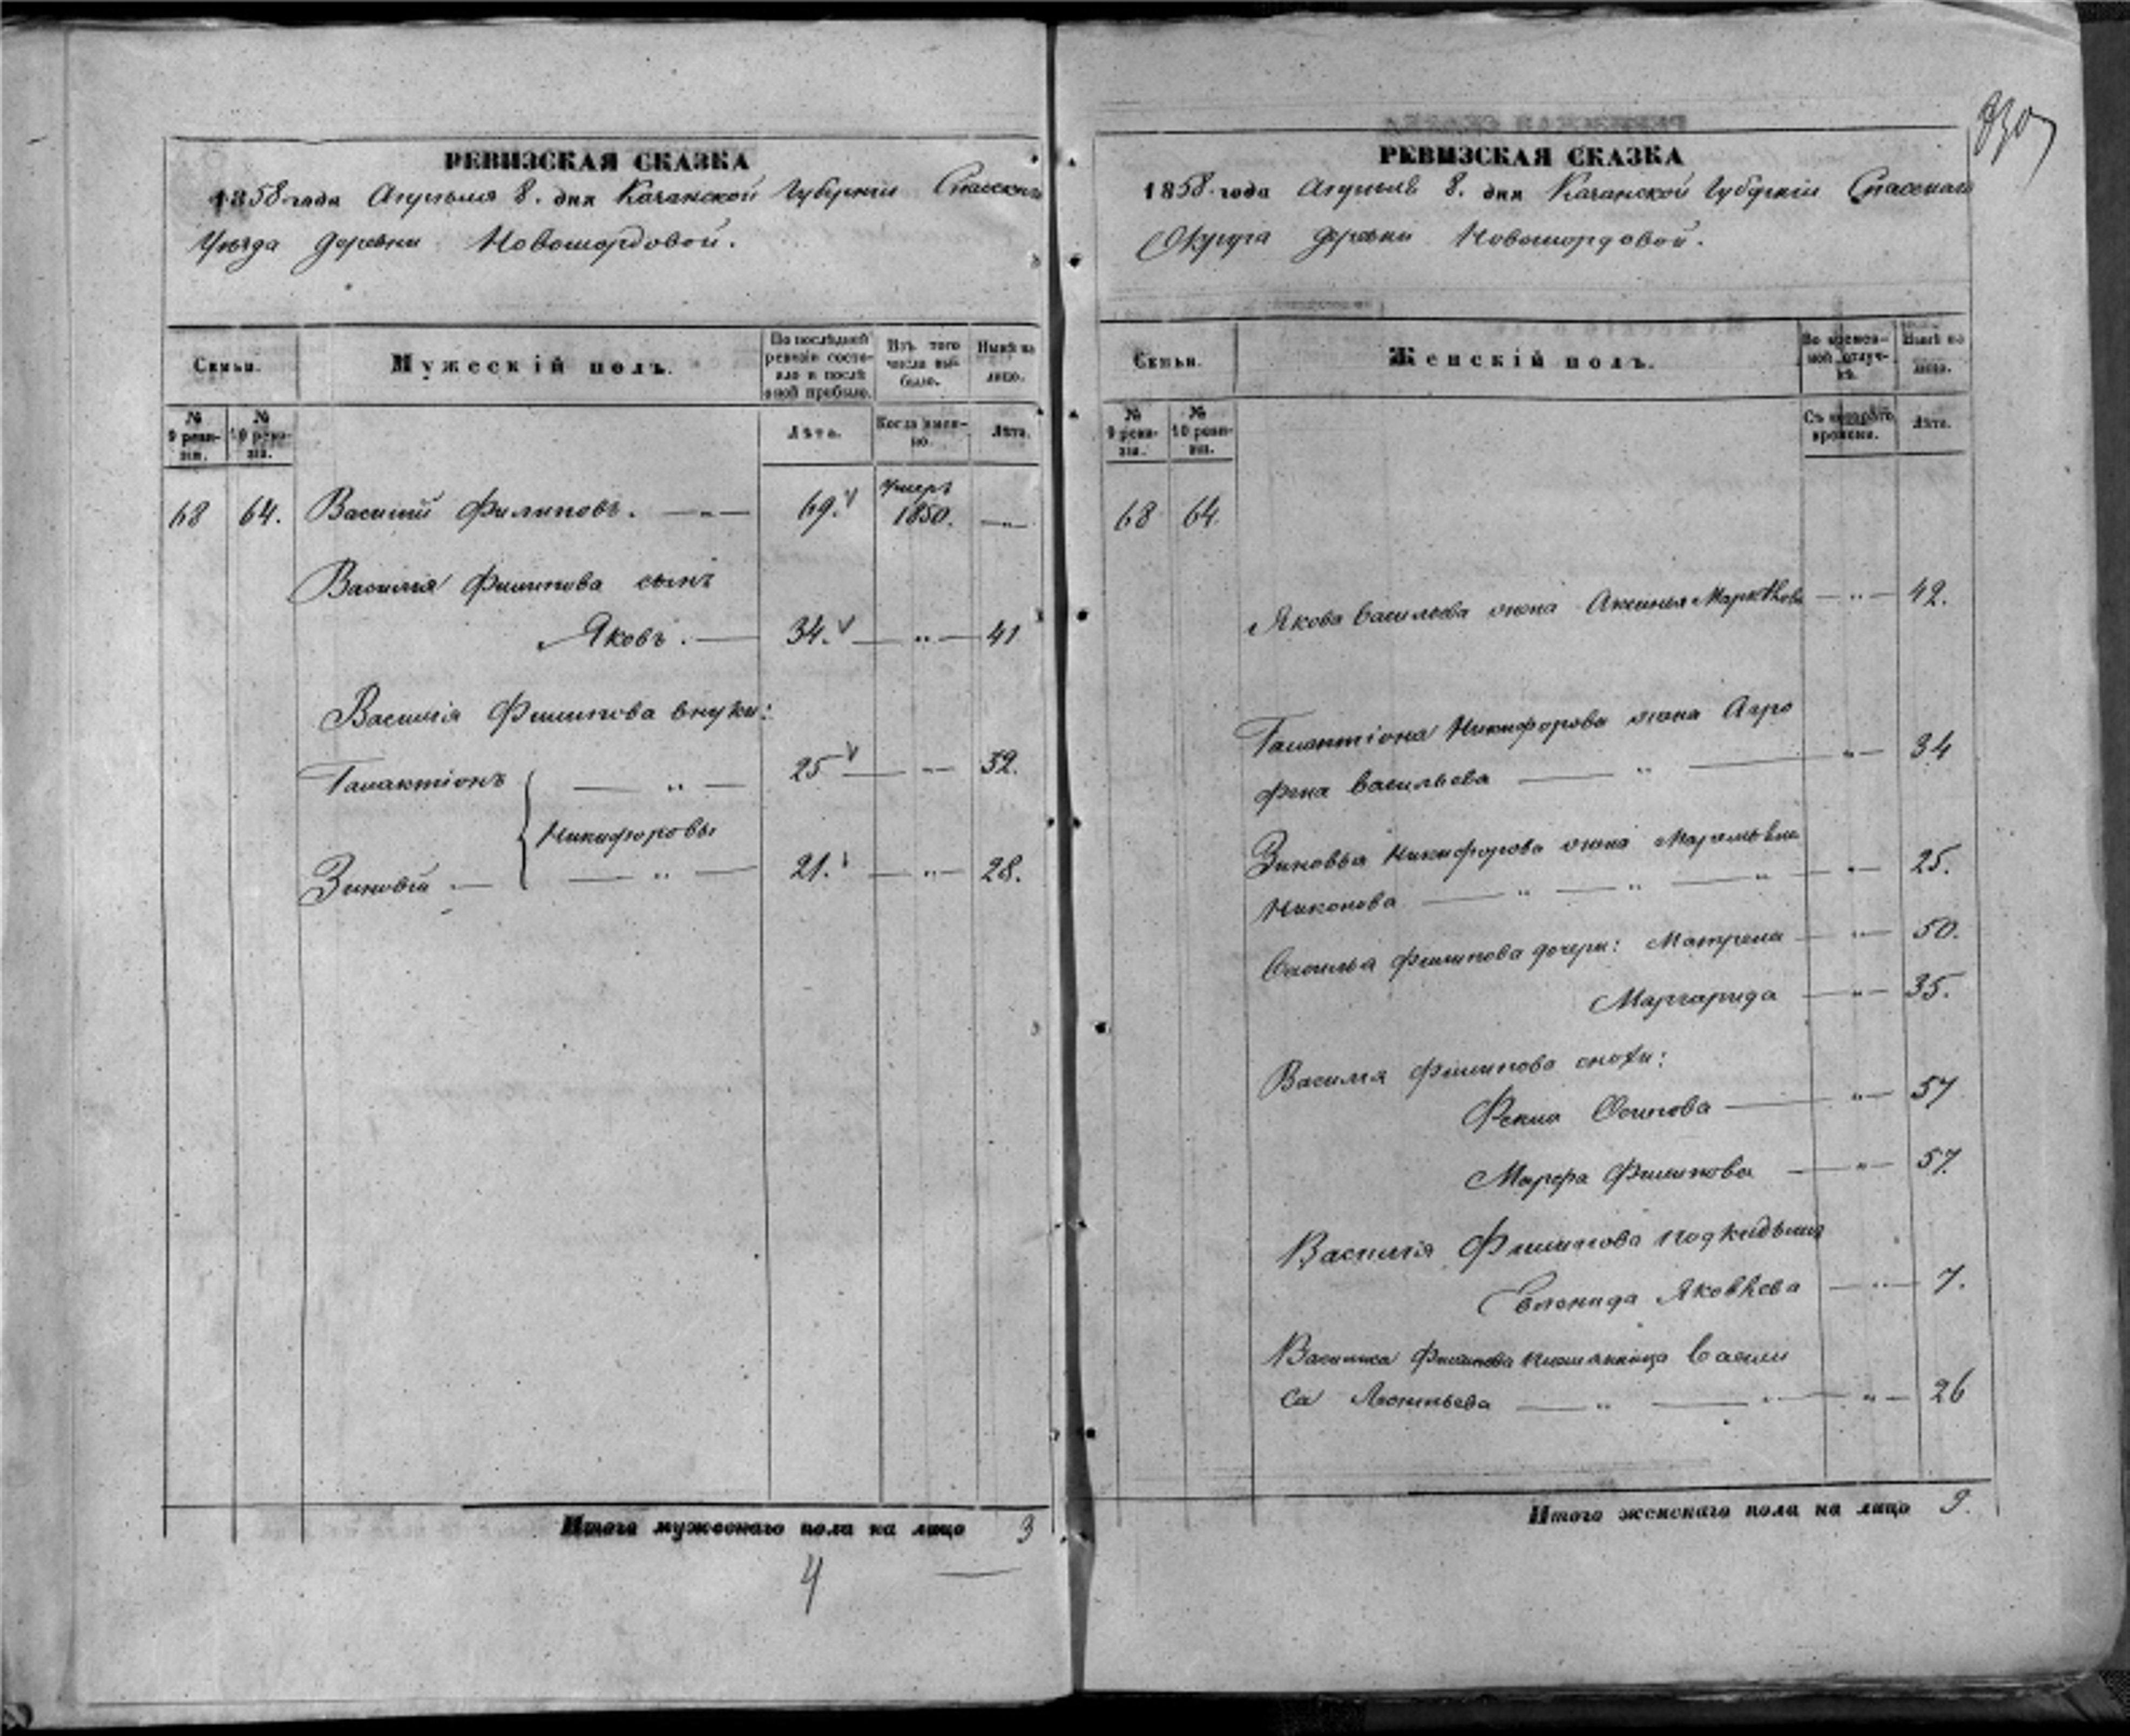 РЕВИЗСКАЯ СКАЗКА
1858 года Апрѣля 8. дня Казанской Губерніи Спасскаго
Уѣзда деревни Новомордовой.
Семьи.
Мужескій полъ.
По послѣдней ревизіи состояло и послѣ оной прибыло.
Изъ того числа выбыло.
Нынѣ на лицо.
№ 9 ревизіи.
№ 10 ревизіи.
Лѣта.
Когда именно.
Лѣта.
68 64. Василій Филиповъ. — " — 69. Умеръ 1850. — " —
Василія Филипова сынъ
Яковъ. — 34. — " — 41
Василія Филипова внуки:
Галактіонъ — " — 25 — " — 32.
Никифоровы
Зиновій — " — 21. — " — 28.
Итого мужескаго пола на лицо 3
4
830
РЕВИЗСКАЯ СКАЗКА
1858 года Апрѣля 8. дня Казанской Губерніи Спасскаго
Округа деревни Новомордовой.
Семьи.
Женскій полъ.
Во временной отлучкѣ.
Нынѣ на лицо.
№ 9 ревизіи.
№ 10 ревизіи.
Съ котораго времени.
Лѣта.
68 64
Якова Васильева жена Аксинья — " — 42.
Галактіона Никифорова жена Агро
фена Васильева — " — " — 34
Зиновья Никифорова жена
Никонова — " — " — " — " — 25.
Василья Филипова дочери: Матрена — " — 50.
Маргарида — " — 35.
Василія Филипова снохи:
Фекла Осипова — " — 57
Марфа Филипова — " — 57.
Василія Филипова подкидышъ
Яковлева — " — 7.
Василья Филипова племянница Васили
са Леонтьева — " — " — " — 26
Итого женскаго пола на лицо 9.